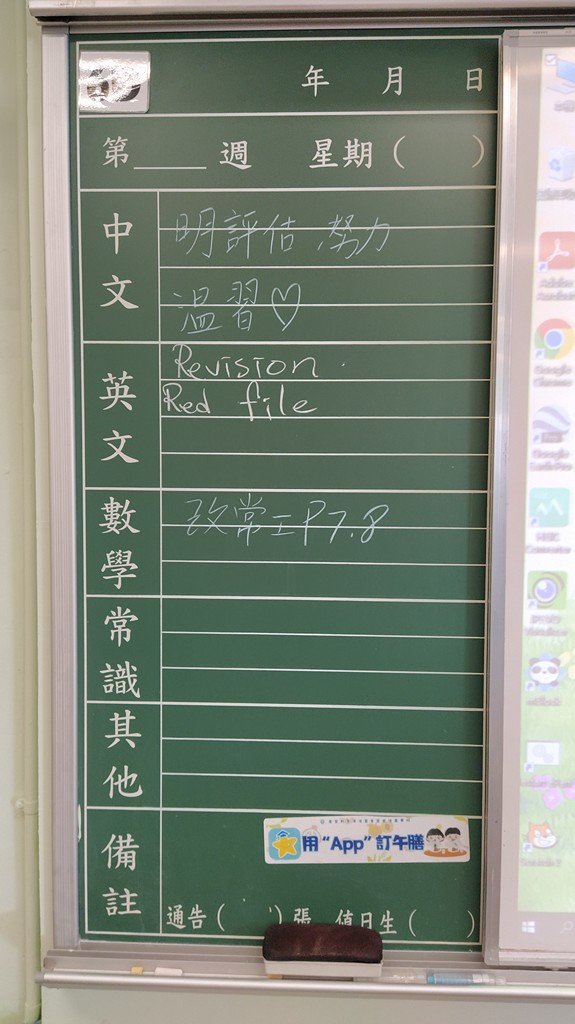 年 月 日
第____週 星期( )
中文
明評估 努力
溫習♡
英文
Revision.
Red file
數學
改常工P7.8
常識
其他
備註
用“App”訂午膳
通告( )張 值日生( )
Adobe Acrobat
Google Chrome
Google Earth Pro